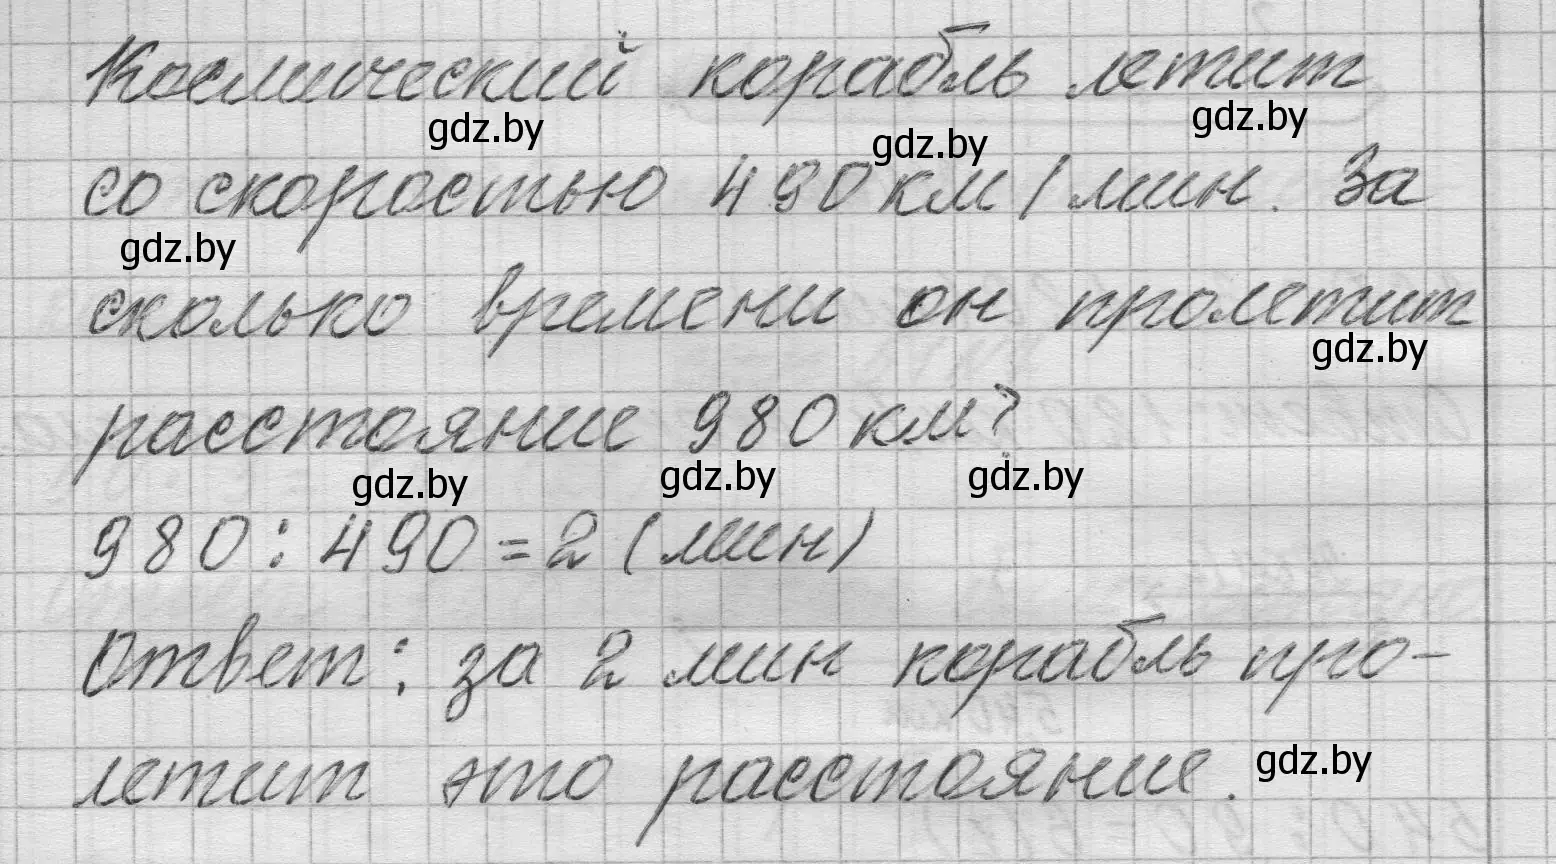 Космический корабль летит
gdz.by gdz.by gdz.by
со скоростью 490 км/мин. За
gdz.by
сколько времени он пролетит
gdz.by
расстояние 980 км?
gdz.by gdz.by gdz.by
980 : 490 = 2 (мин)
Ответ: за 2 мин корабль про-
летит это расстояние.
gdz.by